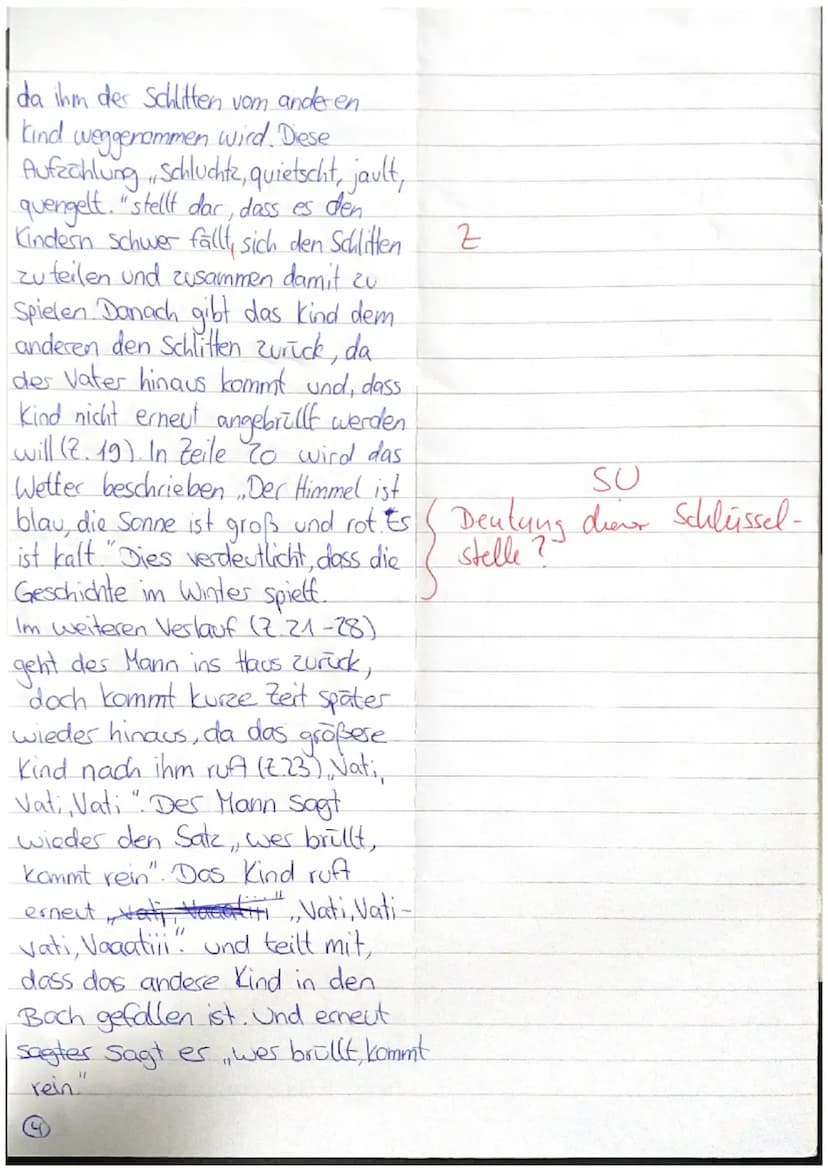 da ihm der Schlitten vom anderen
Kind weggenommen wird. Diese
Aufzählung „schluchtz, quietscht, jault,
quengelt." stellt dar, dass es den
Kindern schwer fällt, sich den Schlitten
Z
zu teilen und zusammen damit zu
spielen. Danach gibt das Kind dem
anderen den Schlitten zurück, da
der Vater hinaus kommt und, dass
Kind nicht erneut angebrüllt werden
will (Z. 19). In Zeile 20 wird das
Wetter beschrieben „Der Himmel ist
SU
blau, die Sonne ist groß und rot. Es
Deutung dieser Schlüssel-
ist kalt." Dies verdeutlicht, dass die
stelle?
Geschichte im Winter spielt.
Im weiteren Verlauf (Z. 21-28)
geht der Mann ins Haus zurück,
doch kommt kurze Zeit später
wieder hinaus, da das größere
Kind nach ihm ruft (Z.23) „Vati,
Vati, Vati". Der Mann sagt
wieder den Satz „wer brüllt,
kommt rein". Das Kind ruft
erneut „Vati, Vaaatiii" „Vati, Vati-
vati, Vaaatiii." und teilt mit,
dass das andere Kind in den
Bach gefallen ist. Und erneut
sagter sagt er „wer brüllt, kommt
rein"
4